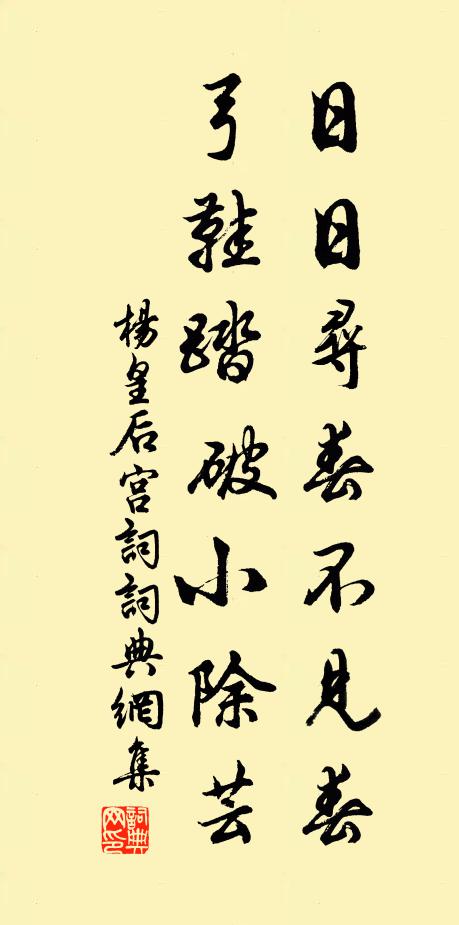 日日尋春不見春
弓鞋踏破小除芸
楊皇后宫詞詞典網集
詞典网印